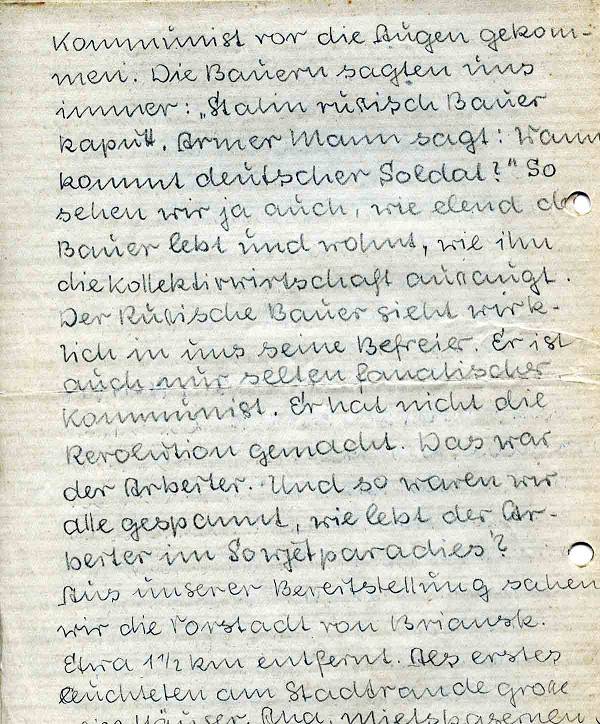 Kommunist vor die Augen gekom-
men. Die Bauern sagten uns
immer: „Stalin rußisch Bauer
kaputt. Armer Mann sagt: Wann
kommt deutscher Soldat?" So
sehen wir ja auch, wie elend der
Bauer lebt und wohnt, wie ihn
die Kollektivwirtschaft aussaugt.
Der Rußische Bauer sieht wirk-
lich in uns seine Befreier. Er ist
auch nur selten fanatischer
Kommunist. Er hat nicht die
Revolution gemacht. Das war
der Arbeiter. Und so waren wir
alle gespannt, wie lebt der Ar-
beiter im Sowjetparadies?
Aus unserer Bereitstellung sahen
wir die Vorstadt von Briansk.
Etwa 1½ km entfernt. Als erstes
leuchteten am Stadtrande große
Häuser. Mietskasernen